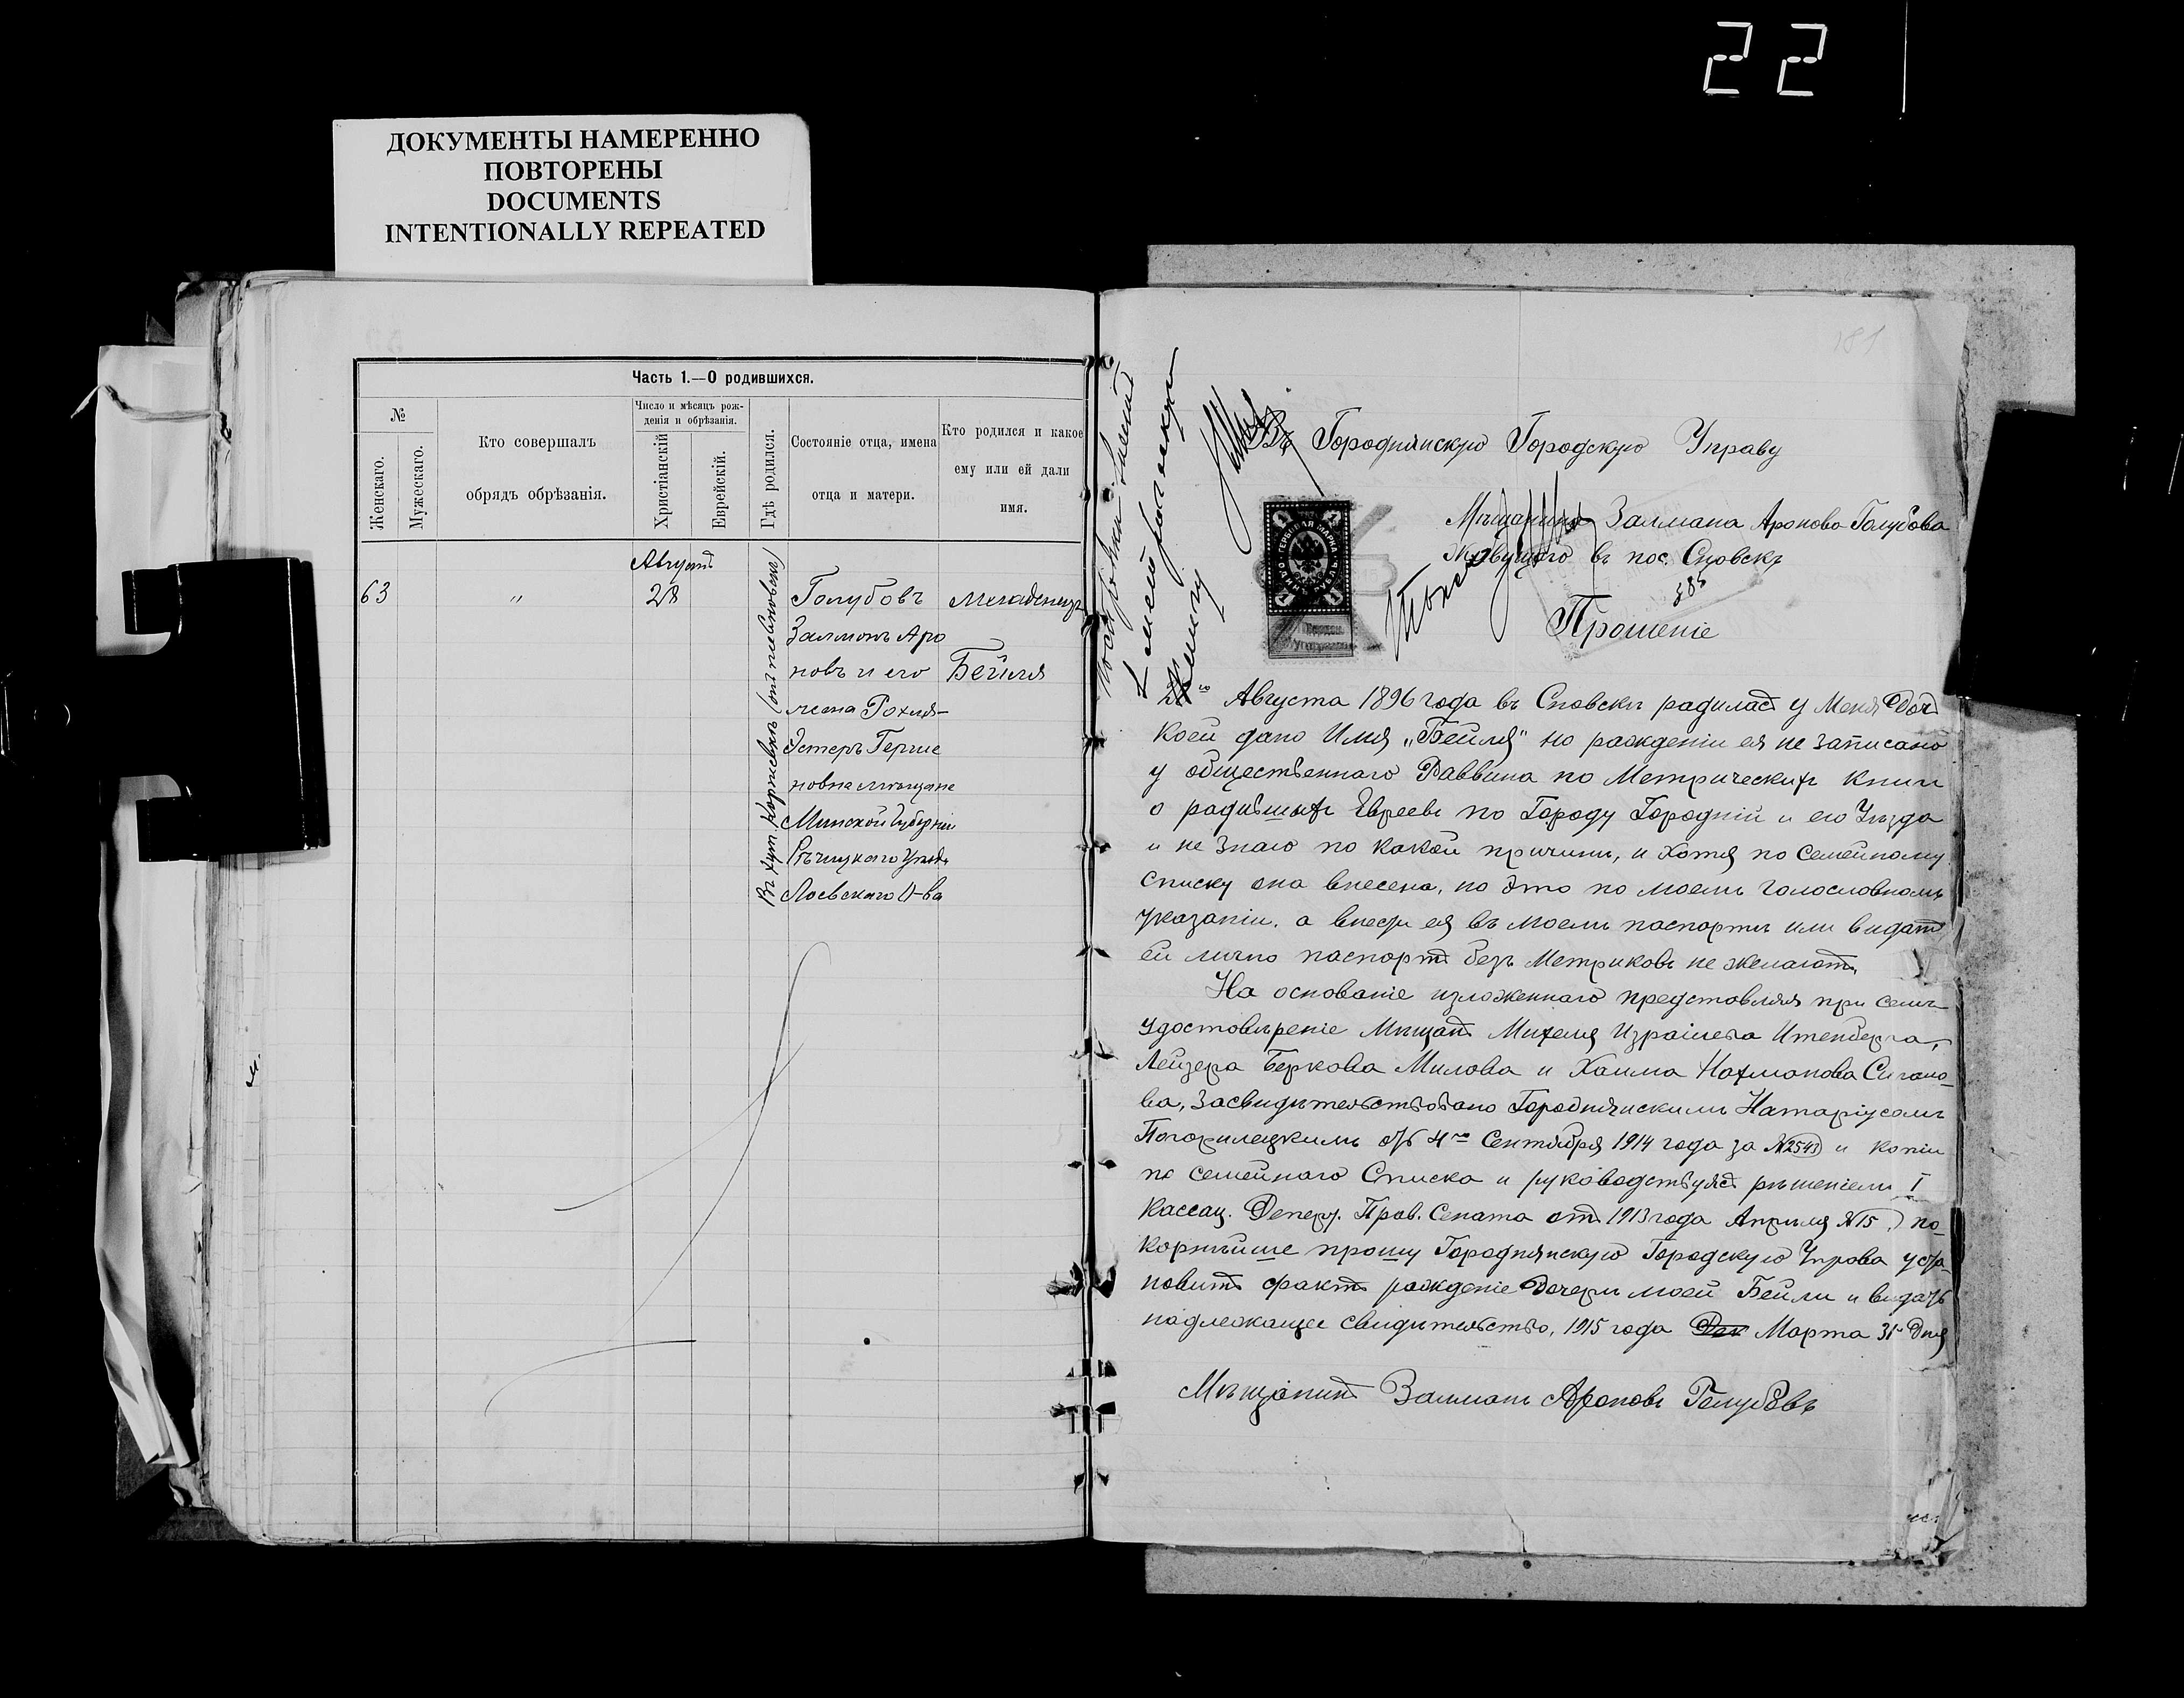 22
ДОКУМЕНТЫ НАМЕРЕННО
ПОВТОРЕНЫ
DOCUMENTS
INTENTIONALLY REPEATED
Часть 1.—О родившихся.
№
Женскаго.
Мужескаго.
Кто совершалъ
обрядъ обрѣзанія.
Число и мѣсяцъ рож-
денія и обрѣзанія.
Христіанскій
Еврейскій.
Гдѣ родился.
Состояніе отца, имена
отца и матери.
Кто родился и какое
ему или ей дали
имя.
Августъ
63 " 28 Голубовъ Младенецъ
Залмонъ Аро
новъ и его Бейля
жена Рохля-
Эстеръ Герше
новна мѣщане
Минской Губерніи
Рѣчицкаго Уѣзда
Лоевскаго О-ва
Въ хут. Корнѣевкѣ
181
Въ Городнянскую Городскую Управу
Мѣщанина Залмана Аронова Голубова
Живущаго въ пос. Сновскѣ
ГЕРБОВАЯ МАРКА
Прошеніе
Августа 1896 года въ Сновскѣ радилась у Меня Дочь
Коей дано Имя „Бейля" но рожденіи ея не записано
у общественнаго Раввина по Метрическихъ книги
о радившихъ Евреевъ по Городу Городній и его Уѣзда
и не знаю по какой причинѣ, и Хотя по семейному
списку она внесена, но это по моемъ голословномъ
указаніи, а внести ея въ моемъ паспортѣ или видать
ей лично паспортъ безъ Метриковъ не желаютъ,
На основаніе изложеннаго представляя при семъ
Удостовѣреніе Мѣщанъ Михеля Израилева Итенберга,
Лейзера Беркова Милова и Хаима Нахманова Сигало-
ва, Засвидѣтельствовано Городнянскимъ Натаріусомъ
отъ 4го Сентября 1914 года за №2543 и копіи
по семейнаго Списка и руководствуясь рѣшеніемъ I
Кассац. Департ. Прав. Сената отъ 1913 года Апрѣля №15, по-
корнѣйше прошу Городнянскую Городскую Управа уста-
новить фактъ рожденіе Дочери моей Бейли и видать
надлежащее свидѣтельство, 1915 года Марта 31 Дня
Мѣщанинъ Залманъ Ароновъ Голубовъ